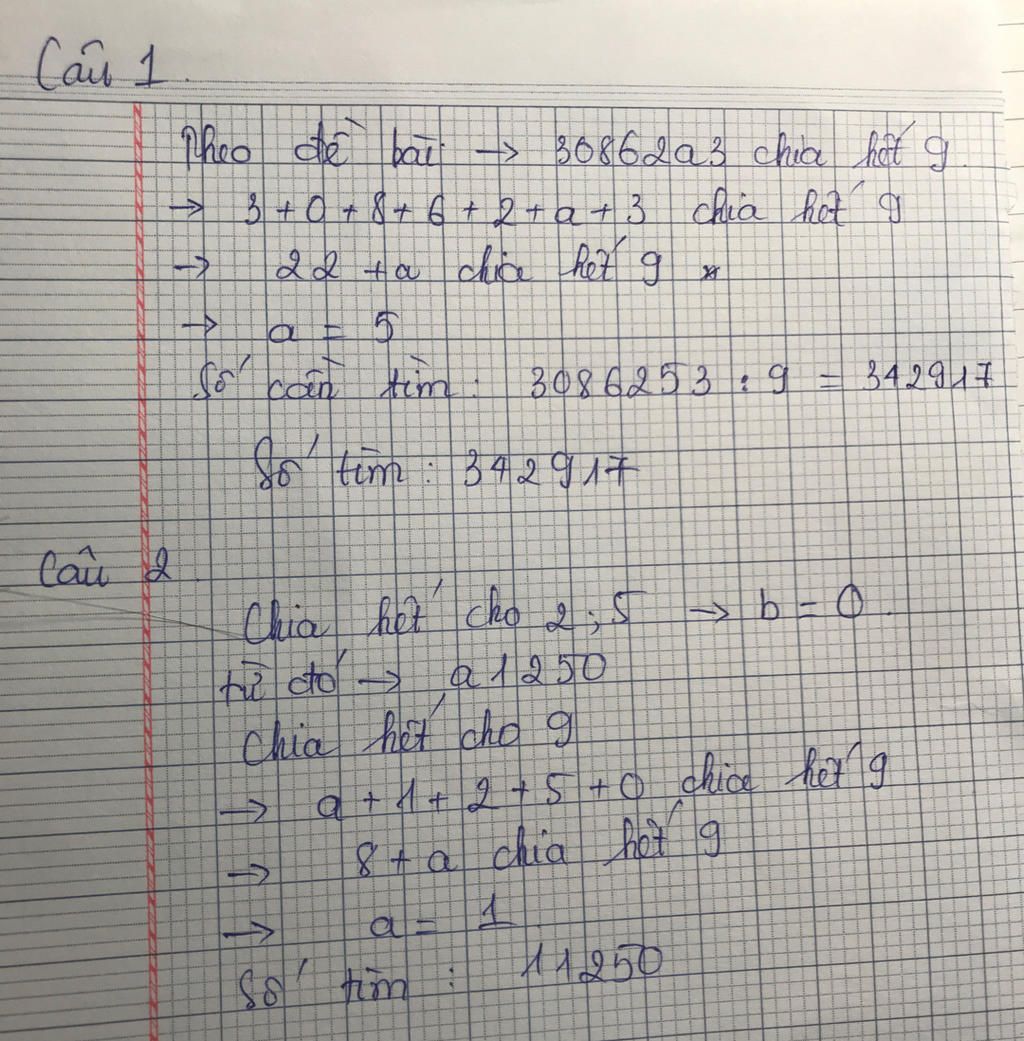 Câu 1.
Theo đề bài → 30862a3 chia hết 9.
→ 3+0+8+6+2+a+3 chia hết 9
→ 22 +a chia hết 9
→ a = 5
Số cần tìm: 3086253 : 9 = 342917
Số tìm: 342917
Câu 2
Chia hết cho 2; 5 → b = 0.
từ đó → a1250
Chia hết cho 9
→ a+1+2+5+0 chia hết 9
→ 8+a chia hết 9
→ a = 1
Số tìm: 11250